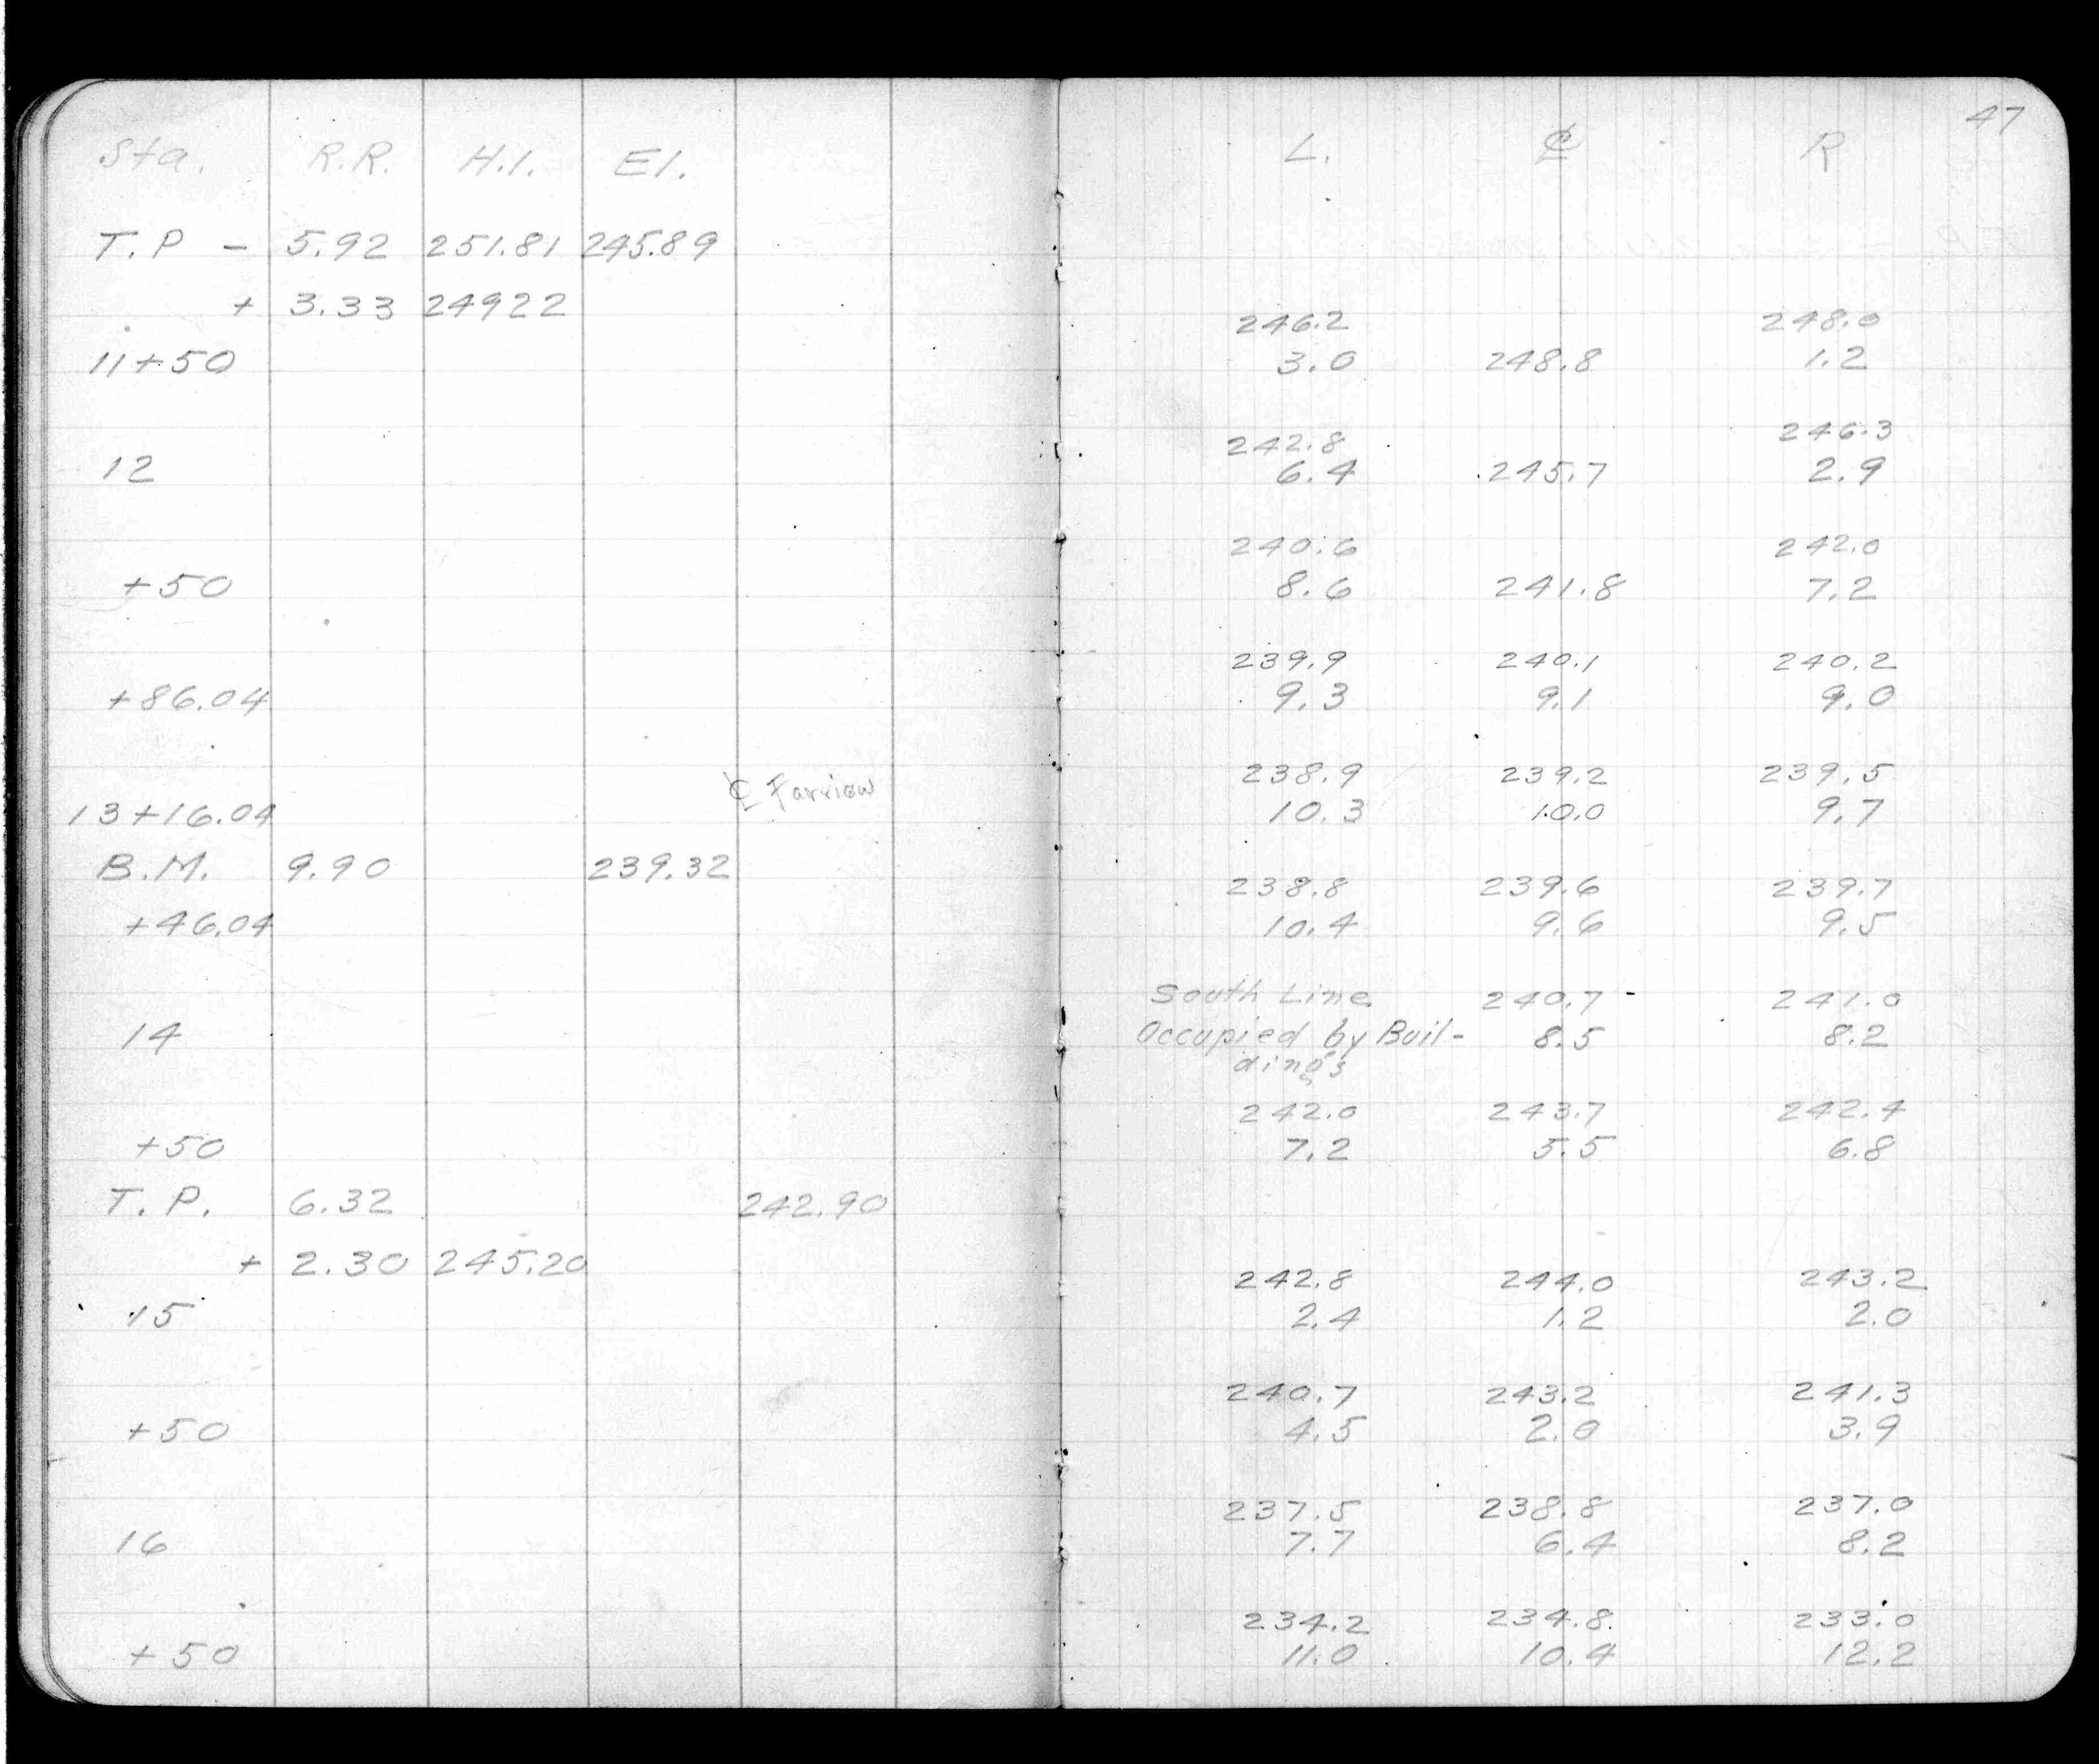 47
Sta. R.R. H.I. El. L. ℄ R
T.P - 5.92 251.81 245.89
+ 3.33 24922
246.2 248.0
11+50 3.0 248.8 1.2
242.8 246.3
12 6.4 245.7 2.9
240.6 242.0
+50 8.6 241.8 7.2
239.9 240.1 240.2
+86.04 9.3 9.1 9.0
238.9 239.2 239.5
℄ Farview
13+16.04 10.3 10.0 9.7
B.M. 9.90 239.32
238.8 239.6 239.7
+46.04 10.4 9.6 9.5
South Line 240.7 241.0
14 Occupied by Buil- 8.5 8.2
dings
242.0 243.7 242.4
+50 7.2 5.5 6.8
T.P. 6.32 242.90
+ 2.30 245.20
242.8 244.0 243.2
15 2.4 1.2 2.0
240.7 243.2 241.3
+50 4.5 2.0 3.9
237.5 238.8 237.0
16 7.7 6.4 8.2
234.2 234.8 233.0
+50 11.0 10.4 12.2